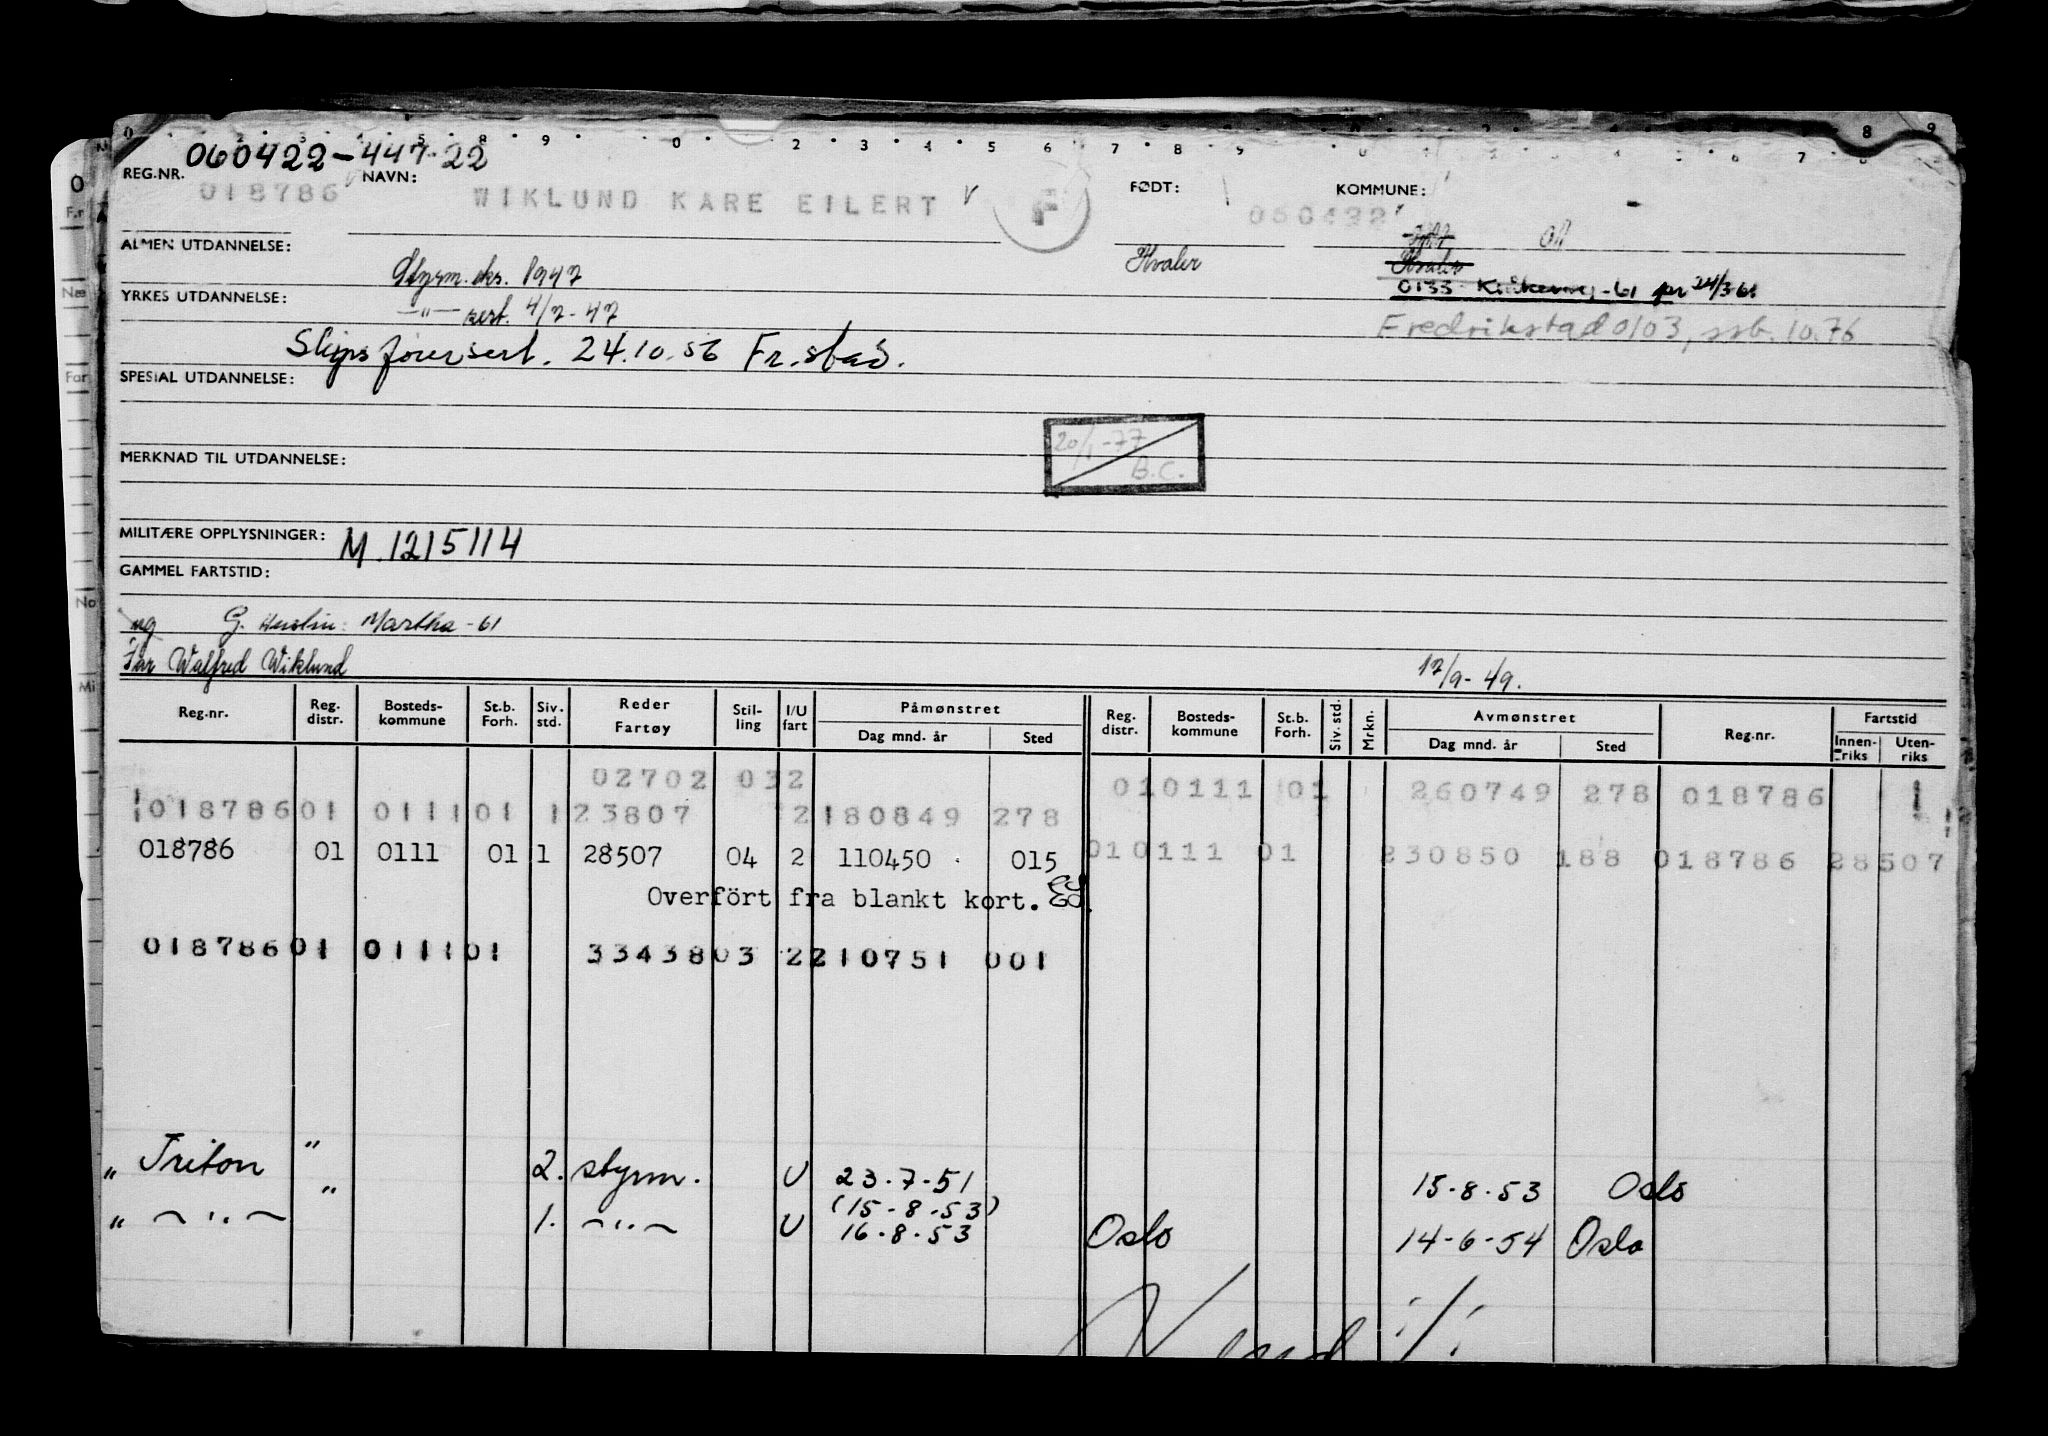 060422-447-22
REG.NR. NAVN: FØDT: KOMMUNE:
018786 WIKLUND KARE EILERT F 060422
ALMEN UTDANNELSE: Styrm. eks. 1947 Hvaler Hvaler
YRKES UTDANNELSE: —"— sert. 4/7-47 0133 -61 pr 24/3 61
Fredrikstad 0103, ssb. 10.76
Skipsførersert. 24.10.56 Fr.stad.
SPESIAL UTDANNELSE:
20/1-77
B.C.
MERKNAD TIL UTDANNELSE:
MILITÆRE OPPLYSNINGER: M. 1215114
GAMMEL FARTSTID:
ug G. Martha -61
Far Walfred Wiklund 17/9-49.
Reg.nr. Reg. distr. Bosteds-kommune St.b. Forh. Siv. std. Reder Fartøy Stil-ling I/U fart Påmønstret Dag mnd. år Sted Reg. distr. Bosteds-kommune St.b. Forh. Siv. std. Mrkn. Avmønstret Dag mnd. år Sted Reg.nr. Fartstid Innen-riks Uten-riks
02702 032 010111 01 260749 278 018786
018786 01 0111 01 1 23807 2 180849 278
018786 01 0111 01 1 28507 04 2 110450 015 010111 01 230850 188 018786 28507
Overfört fra blankt kort.
018786 01 0111 01 33438 03 2 210751 001
" Triton " 2. styrm. U 23.7.51 15.8.53 Oslo
(15.8.53)
" —"— " 1. —"— U 16.8.53 Oslo 14-6-54 Oslo